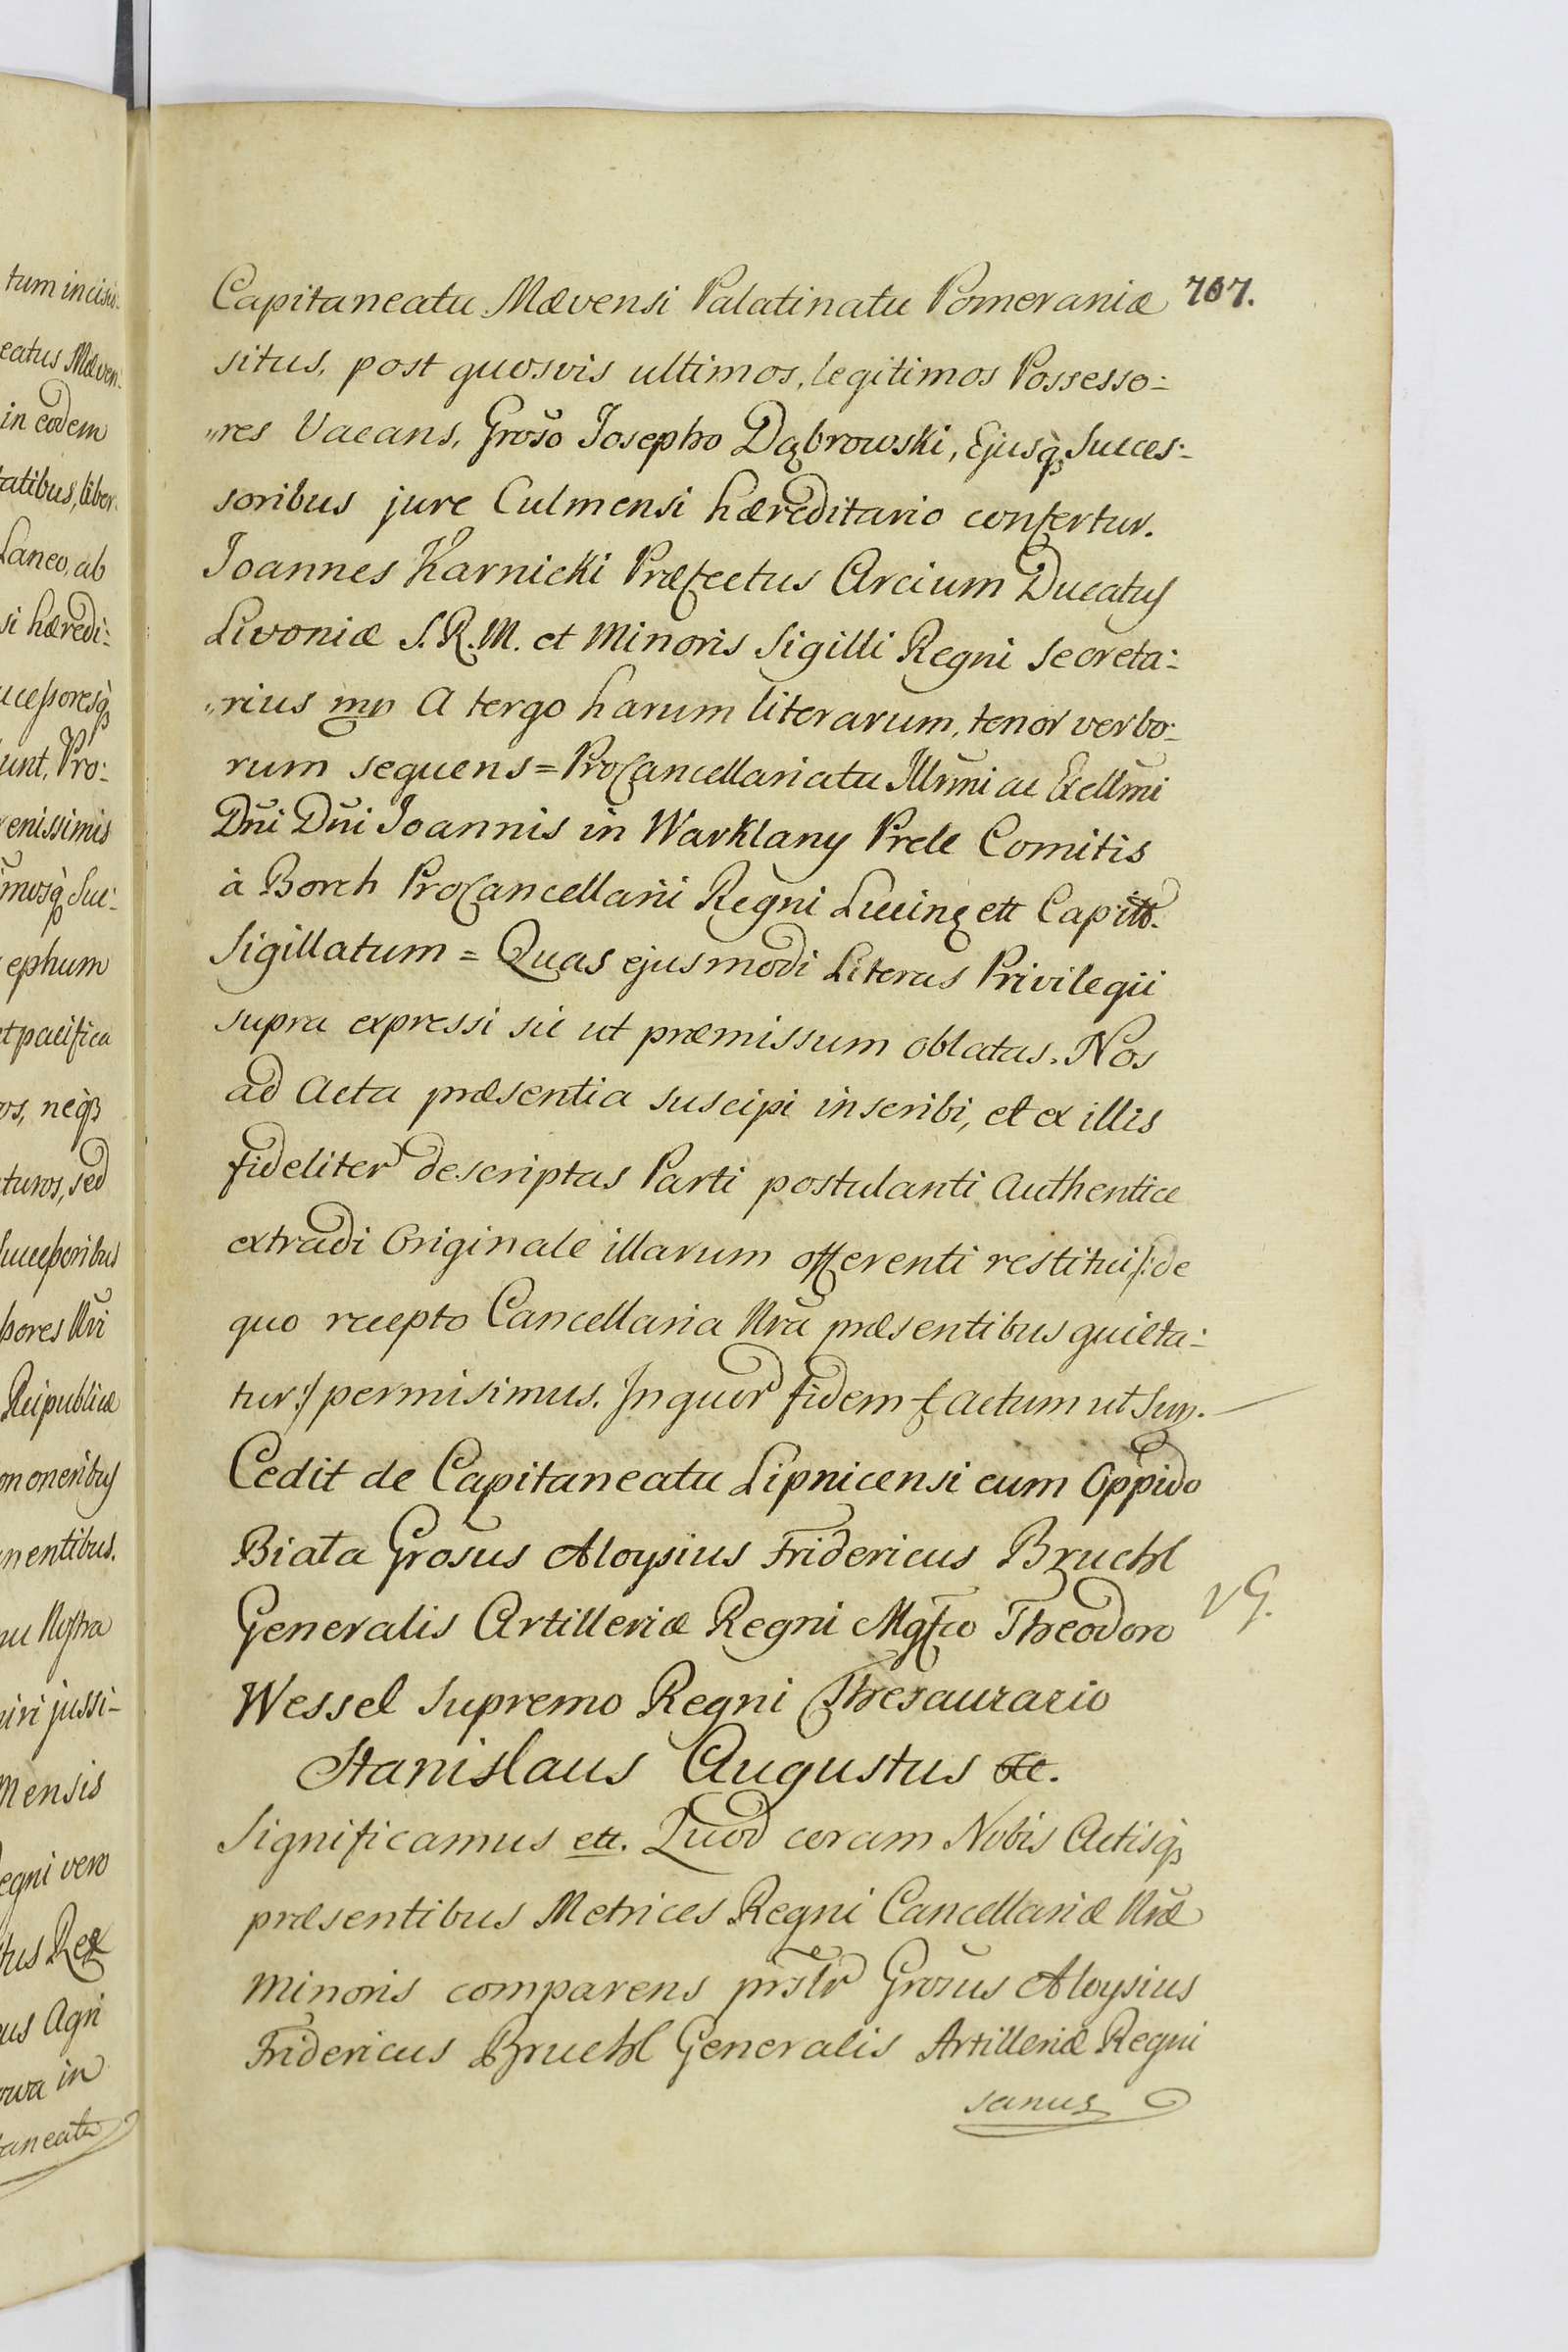 tum incisis.
eatus Mæven:
in eodem
tatibus, liber.
Laneo, ab
si hæredi:
uccessoresq̀
unt, Pro:
enissimis
imosq̀ Suc:
ephum
et pacifica
os, neq̀
turos, sed
Successoribus
ssores Nr̃i
Reipublicæ
on oneribus
nentibus.
nu Nostra
niri jussi-
Mensis
Regni vero
itus Rex
us Agri
owa in
taneatu
Capitaneatu Mævensi Palatinatu Pomeraniæ 707.
situs, post quosvis ultimos, legitimos Possesso:
„res Vacans, Groso Josepho Dąbrowski, Ejusq̀ Succes:
soribus jure Culmensi hæreditario confertur.
Joannes Karnicki Præfectus Arcium Ducatus
Livoniæ S. R. M. et Minoris Sigilli Regni Secreta:
„rius mp A tergo harum literarum, tenor verbo:
rum sequens = ProCancellariatu Illum̃i ac Excellm̃i
Dñi Dñi Joannis in Warklany Prele Comitis
à Borch ProCancellarii Regni Lucing ett Capitt.
Sigillatum = Quas ejusmodi Literas Privilegii
supra expressi sic ut præmissum oblatas. Nos
ad Acta præsentia suscipi inscribi, et ex illis
fideliter descriptas Parti postulanti Authentice
extradi Originale illarum offerenti restitui /: de
quo recepto Cancellaria Nr̃a præsentibus quieta:
tur :/ permisimus. In quor fidem f Actum ut Sup.
Cedit de Capitaneatu Lipnicensi cum Oppido
Biała Grosus Aloysius Fridericus Bruchl
Generalis Artilleriæ Regni Mgfco Theodoro
VG.
Wessel Supremo Regni Thesaurario
Stanislaus Augustus etc.
Significamus ett. Quod coram Nobis Actisq̀
præsentibus Metrices Regni Cancellariæ Nr̃æ
Minoris comparens prsltr Grosus Aloysius
Fridericus Bruehl Generalis Artilleriæ Regni
sanus